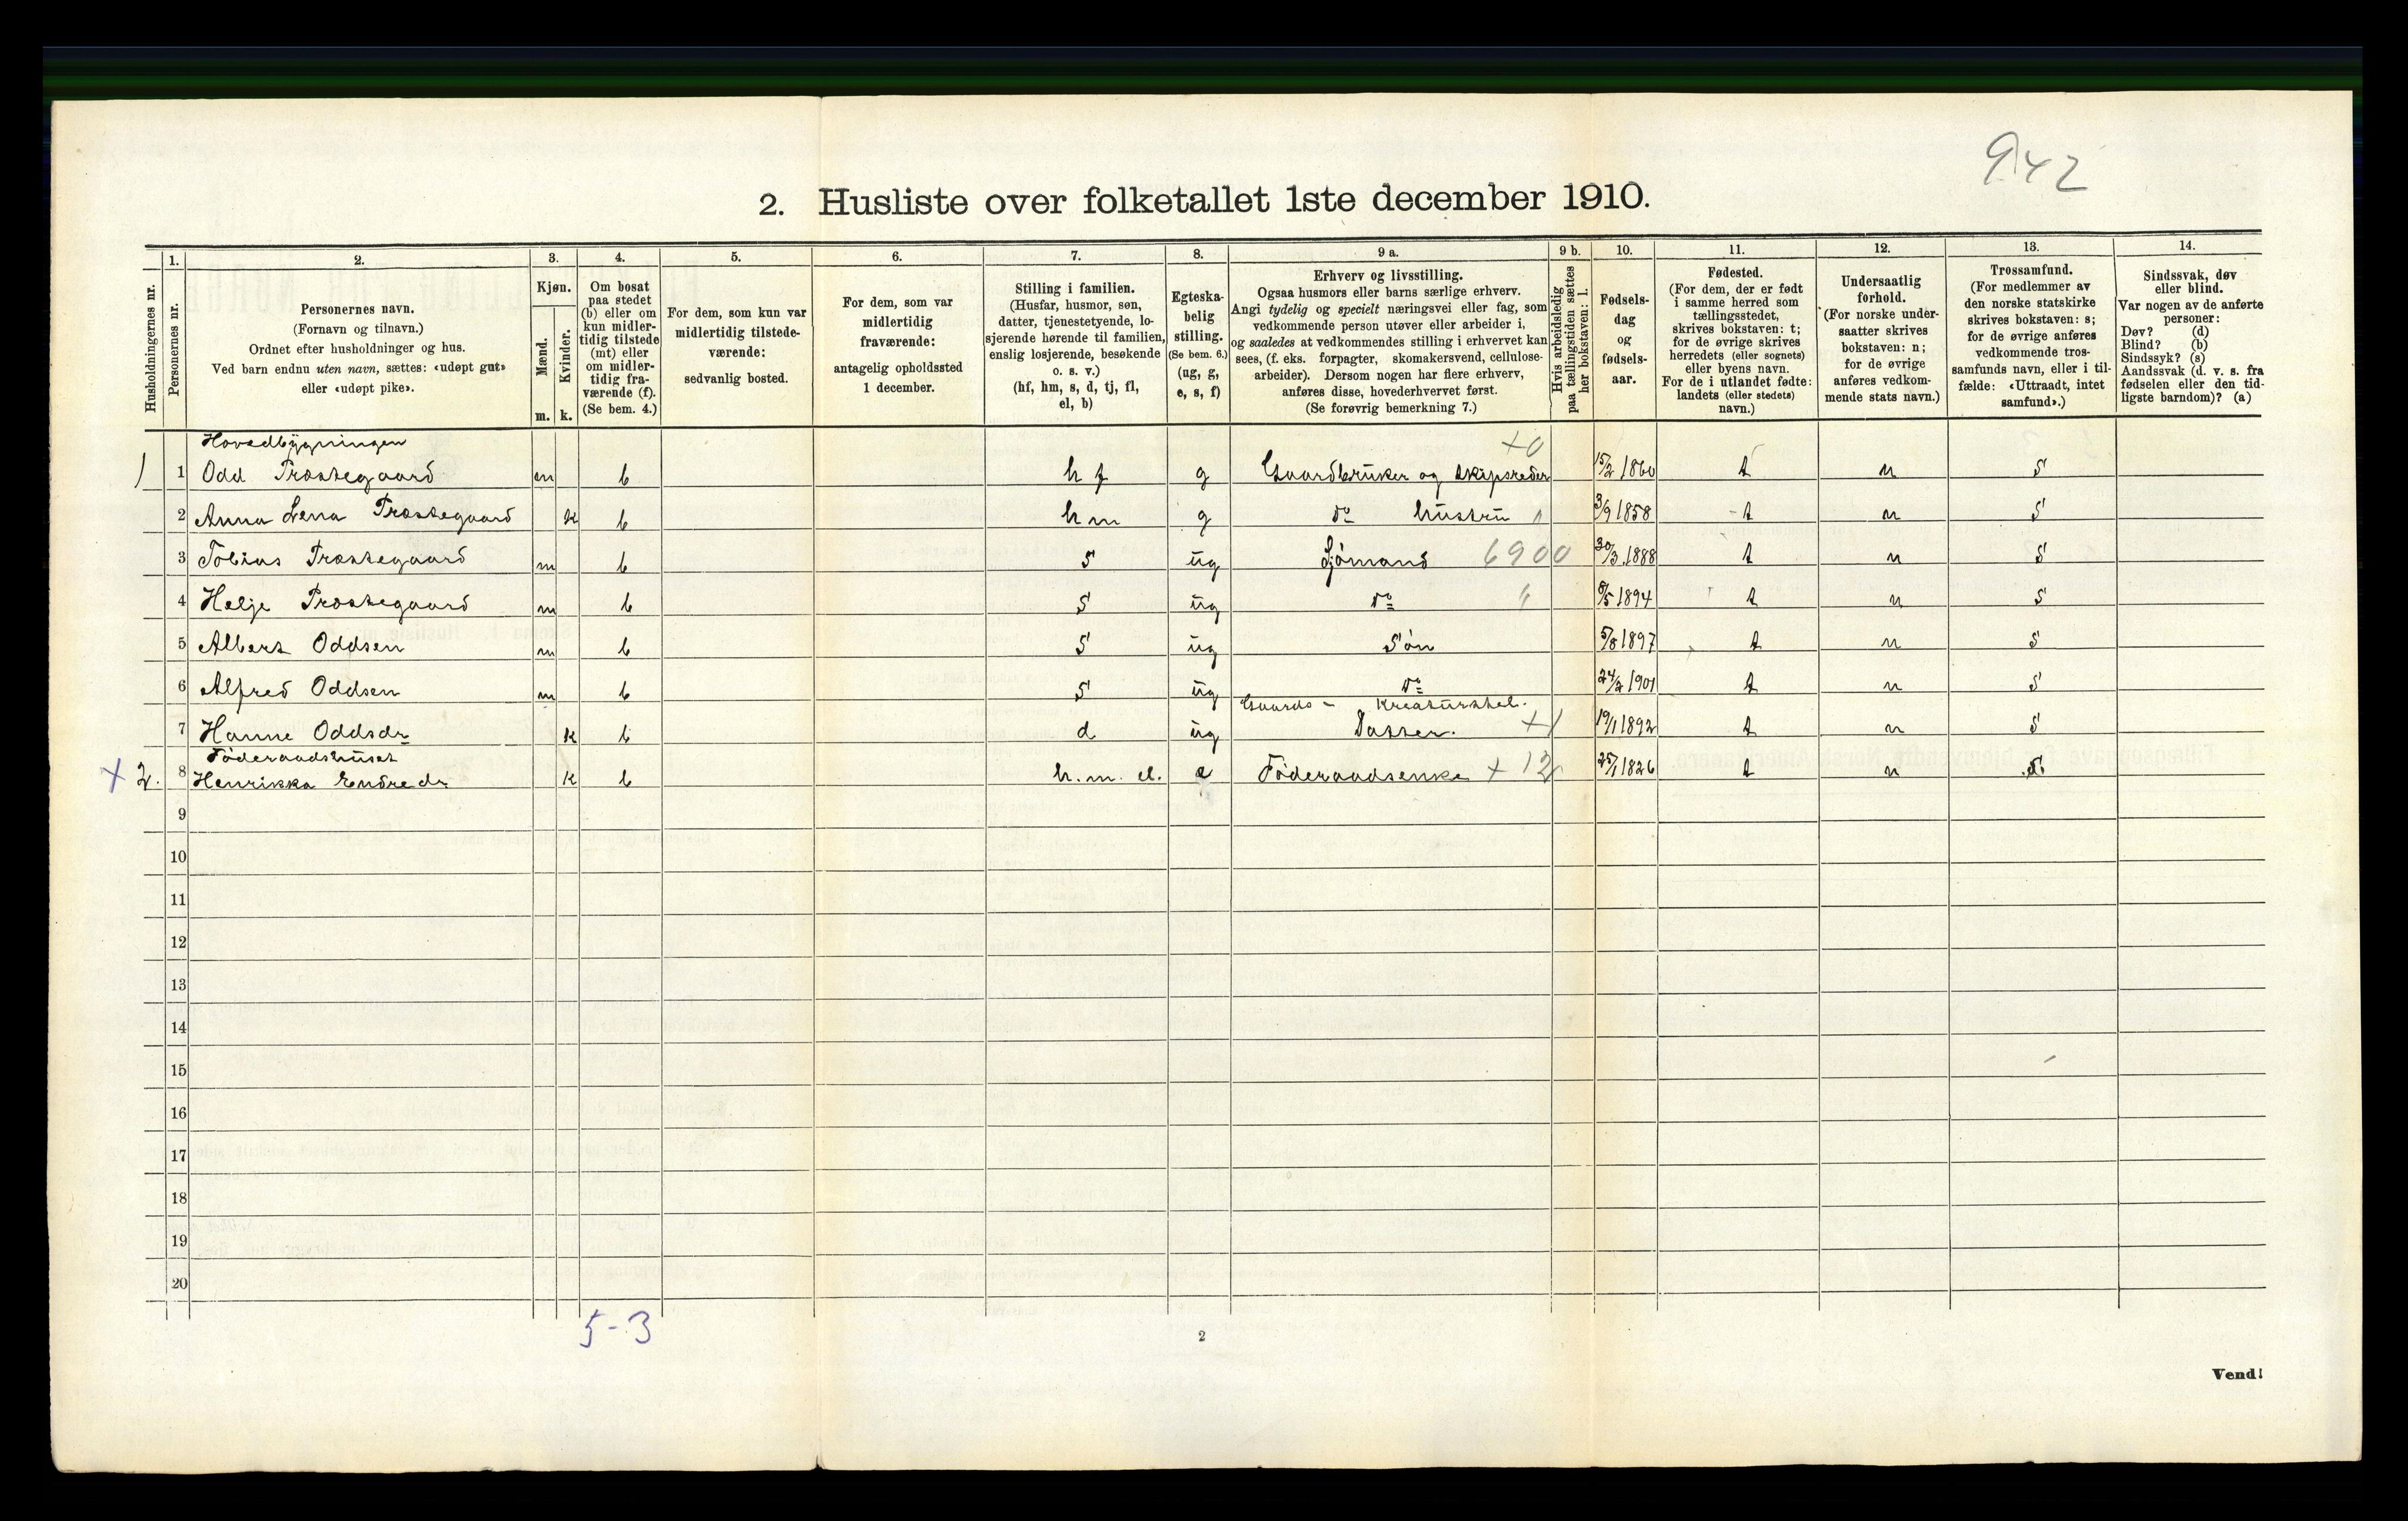 942
2. Husliste over folketallet 1ste december 1910.
Husholdningernes nr.
1.
Personernes nr.
2.
Personernes navn.
(Fornavn og tilnavn.)
Ordnet efter husholdninger og hus.
Ved barn endnu uten navn, sættes: «udøpt gut»
eller «udøpt pike».
3.
Kjøn.
Mænd.
Kvinder.
m. k.
4.
Om bosat
paa stedet
(b) eller om
kun midler-
tidig tilstede
(mt) eller
om midler-
tidig fra-
værende (f).
(Se bem. 4.)
5.
For dem, som kun var
midlertidig tilstede-
værende:
sedvanlig bosted.
6.
For dem, som var
midlertidig
fraværende:
antagelig opholdssted
1 december.
7.
Stilling i familien.
(Husfar, husmor, søn,
datter, tjenestetyende, lo-
sjerende hørende til familien,
enslig losjerende, besøkende
o. s. v.)
(hf, hm, s, d, tj, fl,
el, b)
8.
Egteska-
belig
stilling.
(Se bem. 6.)
(ug, g,
e, s, f)
9 a.
Erhverv og livsstilling.
Ogsaa husmors eller barns særlige erhverv.
Angi tydelig og specielt næringsvei eller fag, som
vedkommende person utøver eller arbeider i,
og saaledes at vedkommendes stilling i erhvervet kan
sees, (f. eks. forpagter, skomakersvend, cellulose-
arbeider). Dersom nogen har flere erhverv,
anføres disse, hovederhvervet først.
(Se forøvrig bemerkning 7.)
9 b.
Hvis arbeidsledig
paa tællingstiden sættes
her bokstaven: l.
10.
Fødsels-
dag
og
fødsels-
aar.
11.
Fødested.
(For dem, der er født
i samme herred som
tællingsstedet,
skrives bokstaven: t;
for de øvrige skrives
herredets (eller sognets)
eller byens navn.
For de i utlandet fødte:
landets (eller stedets)
navn.)
12.
Undersaatlig
forhold.
(For norske under-
saatter skrives
bokstaven: n;
for de øvrige
anføres vedkom-
mende stats navn.)
13.
Trossamfund.
(For medlemmer av
den norske statskirke
skrives bokstaven: s;
for de øvrige anføres
vedkommende tros-
samfunds navn, eller i til-
fælde: «Uttraadt, intet
samfund».)
14.
Sindssvak, døv
eller blind.
Var nogen av de anførte
personer:
Døv? (d)
Blind? (b)
Sindssyk? (s)
Aandssvak (d. v. s. fra
fødselen eller den tid-
ligste barndom)? (a)
Hovedbygningen +0
1 1 Odd Præstegaard m b h f g Gaardbruker og skipsreder 15/2 1860 t n S
2 Anna Lena Præstegaard k b h m g do hustru 3/9 1858 t n S
3 Tobias Præstegaard m b S ug Sjømand 6900 30/3 1888 t n S
4 Helje Præstegaard m b S ug do " 8/5 1894 t n S
5 Albert Oddsen m b S ug Søn 5/8 1897 t n S
6 Alfred Oddsen m b S ug do 24/2 1901 t n S
Gaards- Kreaturstel.
7 Hanne Oddsdr k b d ug Datter. +1 19/1 1892 t n S
Föderaadshuset
+ 2. 8 Henrikka Endredr k b h. m. el. e Föderaadsenke +12 25/1 1826 t n S
9
10
11
12
13
14
15
16
17
18
19
20
5-3
2
Vend!